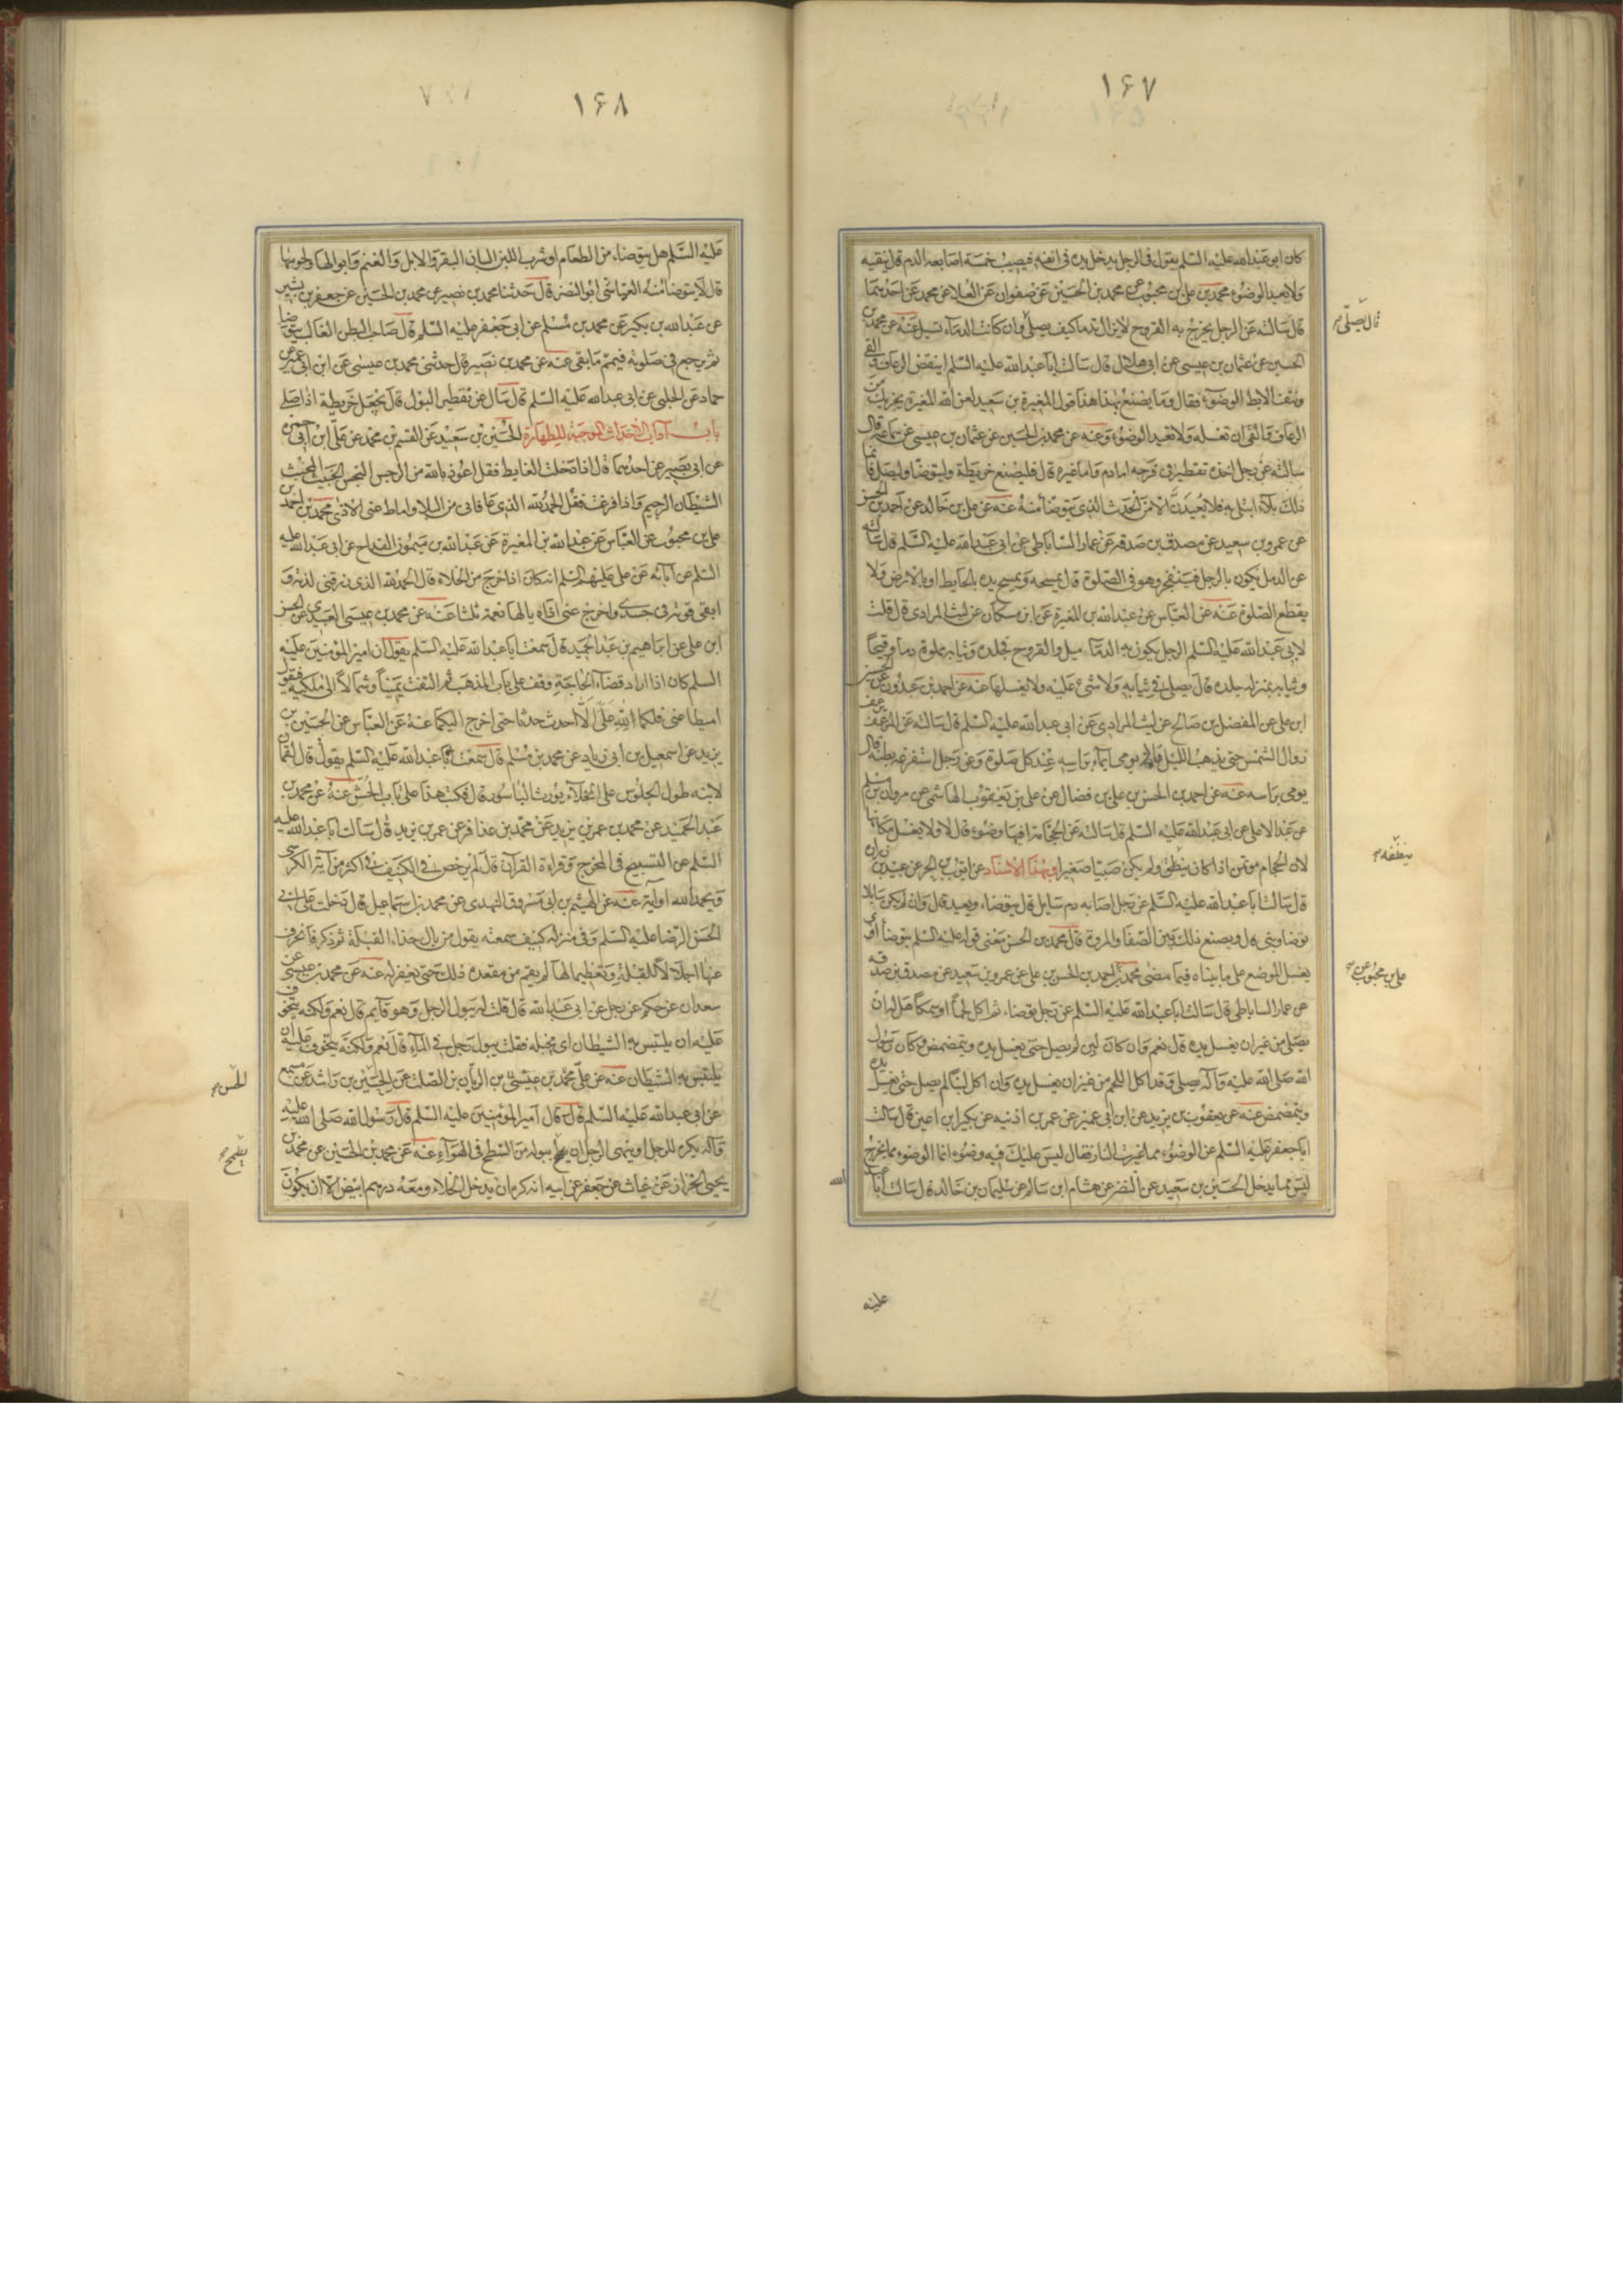 ۱۶۷
كان ابو عبدالله عليه السلم يقول فى الرجل يدخل يده فى انفه فيصيب خمسة اصابعه الدم قال ينقيه
ولا يعيد الوضوء محمد بن على بن محبوب عن محمد بن الحسين عن صفوان عن العلا عن محمد عن احدهما
قال سالته عن الرجل يخرج به القروح لا يزال يدما كيف يصلى وان كانت الدماء تسيل عنه عن محمد بن
الحسين عن عثمان بن عيسى عن ابى هلال قال سالت ابا عبدالله عليه السلم اينقض الرعاف والقى
ونتف الابط الوضوء فقال وما يصنع بهذا هذا قول المغيرة بن سعيد لعن الله المغيرة يجزيك من
الرعاف والقى ان تغسله ولا تعيد الوضوء وعنه عن محمد بن الحسين عن عثمان بن عيسى عن سماعة قال
سالته عن رجل اخذه تقطير فى فرجه اما دم واما غيره قال فليصنع خريطة وليتوضا وليصل فانما
ذلك بلاء ابتلى به فلا يعيدن الا من الحدث الذى يتوضا منه عنه عن على بن خالد عن احمد بن الحسن
عن عمرو بن سعيد عن مصدق بن صدقه عن عمار الساباطى عن ابى عبدالله عليه السلم قال سالته
عن الدمل يكون بالرجل فينفجر وهو فى الصلوة قال يمسحه ويمسح يده بالحايط او بالارض ولا
يقطع الصلوة عنه عن العباس عن عبدالله بن المغيرة عن ابن مسكان عن ليث المرادى قال قلت
لابى عبدالله عليه السلم الرجل يكون به الدماميل والقروح فجلده وثيابه مملوة دما وقيحا
وثيابه بمنزله جلده قال يصلى فى ثيابه ولا شىء عليه ولا يغسلها عنه عن احمد بن عبدون عن الحسن
ابن على عن المفضل بن صالح عن ليث المرادى عن ابى عبدالله عليه السلم قال سالته عن المرعف يرعف
زوال الشمس حتى يذهب الليل قال يومى ايماء براسه عند كل صلوة وعن رجل استفرغه بطنه قال
يومى براسه عنه عن احمد بن الحسن بن على بن فضال عن على بن يعقوب الهاشمى عن مروان بن مسلم
عن عبد الاعلى عن ابى عبدالله عليه السلم قال سالته عن الحجامة افيها وضوء قال لا ولا يغسل مكانها
لان الحجام مؤتمن اذا كان ينظف ولم يكن صبيا صغيرا وبهذا الاسناد عن ايوب بن الحر عن عبيد بن زرارة
قال سالت ابا عبدالله عليه السلم عن رجل اصابه دم سايل قال يتوضا ويعيد قال وان لم يكن سايلا
توضا وبنى قال ويصنع ذلك بين الصفا والمروة قال محمد بن الحسن معنى قوله عليه السلم يتوضا اى
يغسل الموضع على ما بيناه فيما مضى محمد بن احمد بن الحسن بن على عن عمرو بن سعيد عن مصدق بن صدقه
عن عمار الساباطى قال سالت ابا عبدالله عليه السلم عن رجل توضا ثم اكل لحما او سمكا هل له ان
يصلى من غير ان يغسل يده قال نعم وان كان لبن لم يصل حتى يغسل يده ويتمضمض وكان رسول
الله صلى الله عليه وآله يصلى وقد اكل اللحم من غير ان يغسل يده وان اكل لبنا لم يصل حتى يغسل يده
ويتمضمض عنه عن يعقوب بن يزيد عن ابن ابى عمير عن عمر بن اذنيه عن بكير ابن اعين قال سالت
ابا جعفر عليه السلم عن الوضوء مما غيرت النار فقال ليس عليك فيه وضوء انما الوضوء مما يخرج
ليس مما يدخل الحسين بن سعيد عن النضر عن هشام ابن سالم عن سليمان بن خالد قال سالت ابا عبد
الله
قال يصلى
ينظفه
على بن محبوب عن
عليه
۱۶۸
عليه السلم هل يتوضا من الطعام او شرب اللبن البان البقر والابل والغنم وابوالها ولحومها
قال لا يتوضا منه العياشى ابو النضر قال حدثنا محمد بن نصير عن محمد بن الحسين عن جعفر بن بشير
عن عبدالله بن بكير عن محمد بن مسلم عن ابى جعفر عليه السلم قال صاحب البطن الغالب يتوضا
ثم يرجع فى صلوته فيتم ما بقى عنه عن محمد بن نصير قال حدثنى محمد بن عيسى عن ابن ابى عمير عن
حماد عن الحلبى عن ابى عبدالله عليه السلم قال سال عن تقطير البول قال يجعل خريطة اذا صلى
باب آداب الاحداث الموجبة للطهارة الحسين بن سعيد عن القسم بن محمد عن على ابن ابى حمزه
عن ابى بصير عن احدهما قال اذا دخلت الغايط فقل اعوذ بالله من الرجس النجس الخبيث المخبث
الشيطان الرجيم واذا فرغت فقل الحمد لله الذى عافانى من البلاء واماط عنى الاذى محمد بن احمد بن
على بن محبوب عن العباس عن عبدالله بن المغيرة عن عبدالله بن ميمون القداح عن ابى عبدالله عليه
السلم عن آبائه عن على عليهم السلم انه كان اذا خرج من الخلاء قال الحمد لله الذى رزقنى لذته و
ابقى قوته فى جسدى واخرج عنى اذاه يالها نعمة ثلثا عنه عن محمد بن عيسى العبيدى عن الحسن
ابن على عن ابراهيم بن عبد الحميد قال سمعت ابا عبدالله عليه السلم يقول ان امير المؤمنين عليه
السلم كان اذا اراد قضاء الحاجة وقف على باب المذهب ثم التفت يمينا وشمالا الى ملكيه فيقول
اميطا عنى فلكما الله على الا احدث حدثا حتى اخرج اليكما عنه عن العباس عن الحسين بن
يزيد عن اسمعيل بن ابى زياد عن محمد بن مسلم قال سمعت ابا عبدالله عليه السلم يقول قال لقمان
لابنه طول الجلوس على الخلاء يورث الباسور قال فكتب هذا على باب الحش عنه عن محمد بن
عبد الحميد عن محمد بن عمر بن يزيد عن محمد بن عذافر عن عمر بن يزيد قال سالت ابا عبدالله عليه
السلم عن التسبيح فى المخرج وقراءة القرآن قال لم يرخص فى الكنيف فى اكثر من آية الكرسى
ويحمد الله او آية عنه عن الهيثم بن ابى مسروق النهدى عن محمد بن اسماعيل قال دخلت على ابى
الحسن الرضا عليه السلم وفى منزله كنيف سمعته يقول من بال حذاء القبلة ثم ذكر فانحرف
عنها اجلالا للقبلة وتعظيما لها لم يقم من مقعده ذلك حتى يغفر له عنه عن محمد بن عيسى عن
سعدان عن حكم عن رجل عن ابى عبدالله قال قلت له يبول الرجل وهو قايم قال نعم ولكنه يتخوف
عليه ان يلتبس به الشيطان اى يخبله فقلت يبول رجل فى الماء قال نعم ولكنه يتخوف عليه ان
يلتبس به الشيطان عنه عن على محمد بن عيسى بن الريان بن الصلت عن الحسين بن راشد عن مسمع
عن ابى عبدالله عليه السلم قال قال امير المؤمنين عليه السلم قال رسول الله صلى الله عليه
وآله يكره للرجل او ينهى الرجل ان يطمح ببوله من السطح فى الهواء عنه عن محمد بن الحسين عن محمد بن
يحيى الخزاز عن غياث عن جعفر عن ابيه انه كره ان يدخل الخلاء ومعه درهم ابيض الا ان يكون
الحسن
يطمح